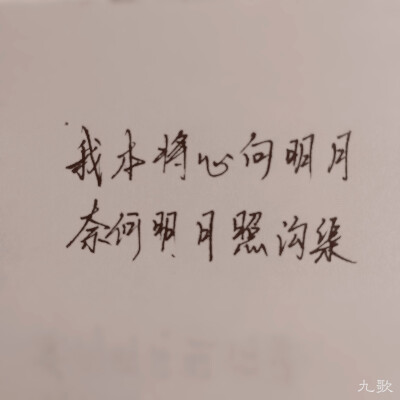 我本将心向明月
奈何明月照沟渠
九歌